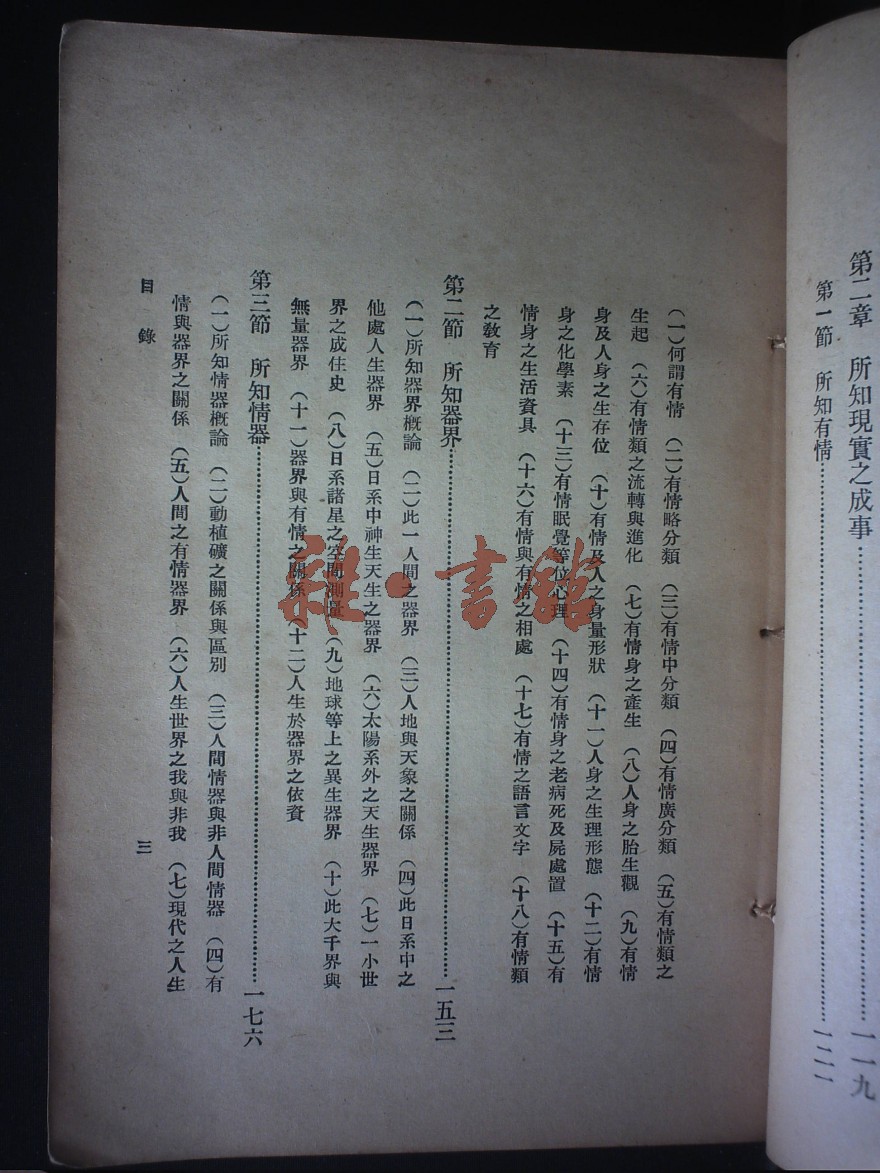 第二章　所知現實之成事……………………一一九
第一節　所知有情……………………一二一
（一）何謂有情　（二）有情略分類　（三）有情中分類　（四）有情廣分類　（五）有情類之
生起　（六）有情類之流轉與進化　（七）有情身之產生　（八）人身之胎生觀　（九）有情
身及人身之生存位　（十）有情及人之身量形狀　（十一）人身之生理形態　（十二）有情
身之化學素　（十三）有情眠覺等位心理　（十四）有情身之老病死及屍處置　（十五）有
情身之生活資具　（十六）有情與有情之相處　（十七）有情之語言文字　（十八）有情類
之教育
第二節　所知器界……………………一五三
（一）所知器界概論　（二）此一人間之器界　（三）人地與天象之關係　（四）此日系中之
他處人生器界　（五）日系中神生天生之器界　（六）太陽系外之天生器界　（七）一小世
界之成住史　（八）日系諸星之空間測量　（九）地球等上之異生器界　（十）此大千界與
無量器界　（十一）器界與有情之關係　（十二）人生於器界之依資
第三節　所知情器……………………一七六
（一）所知情器概論　（二）動植礦之關係與區別　（三）人間情器與非人間情器　（四）有
情與器界之關係　（五）人間之有情器界　（六）人生世界之我與非我　（七）現代之人生
目錄　三
雜·書館